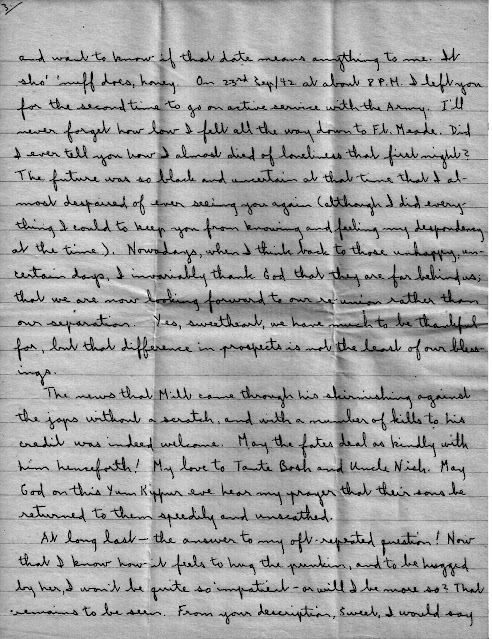 3/
and want to know if that date means anything to me. It
sho' 'nuff does, honey. On 23rd Sep/42 at about 8 P.M. I left you
for the second time to go on active service with the Army. I'll
never forget how low I felt all the way down to Ft. Meade. Did
I ever tell you how I almost died of loneliness that first night?
The future was so black and uncertain at that time that I al-
most despaired of ever seeing you again (although I did every-
thing I could to keep you from knowing and feeling my despondency
at the time). Nowadays, when I think back to those unhappy, un-
certain days, I invariably thank God that they are far behind us;
that we are now looking forward to our re-union rather than
our separation. Yes, sweetheart, we have much to be thankful
for, but that difference in prospects is not the least of our bless-
ings.
The news that Milt came through his skirmishing against
the japs without a scratch, and with a number of kills to his
credit was indeed welcome. May the fates deal as kindly with
him henceforth! My love to Tante Bosh and Uncle Nish. May
God on this Yum Kippur eve hear my prayer that their sons be
returned to them speedily and unscathed.
At long last — the answer to my oft-repeated question! Now
that I know how it feels to hug the punkin, and to be hugged
by her, I won't be quite so impatient - or will I be more so? That
remains to be seen. From your description, Sweet, I would say